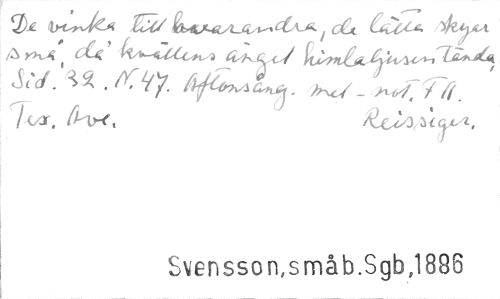 De vinka till hvarandra, de lätta skyar
små, då kvällens ängel himlaljusen tända,
Sid. 32. N. 47. Aftonsång. met - not. F A.
Tex. Ave. Reissiger.
Svensson, småb. Sgb, 1886